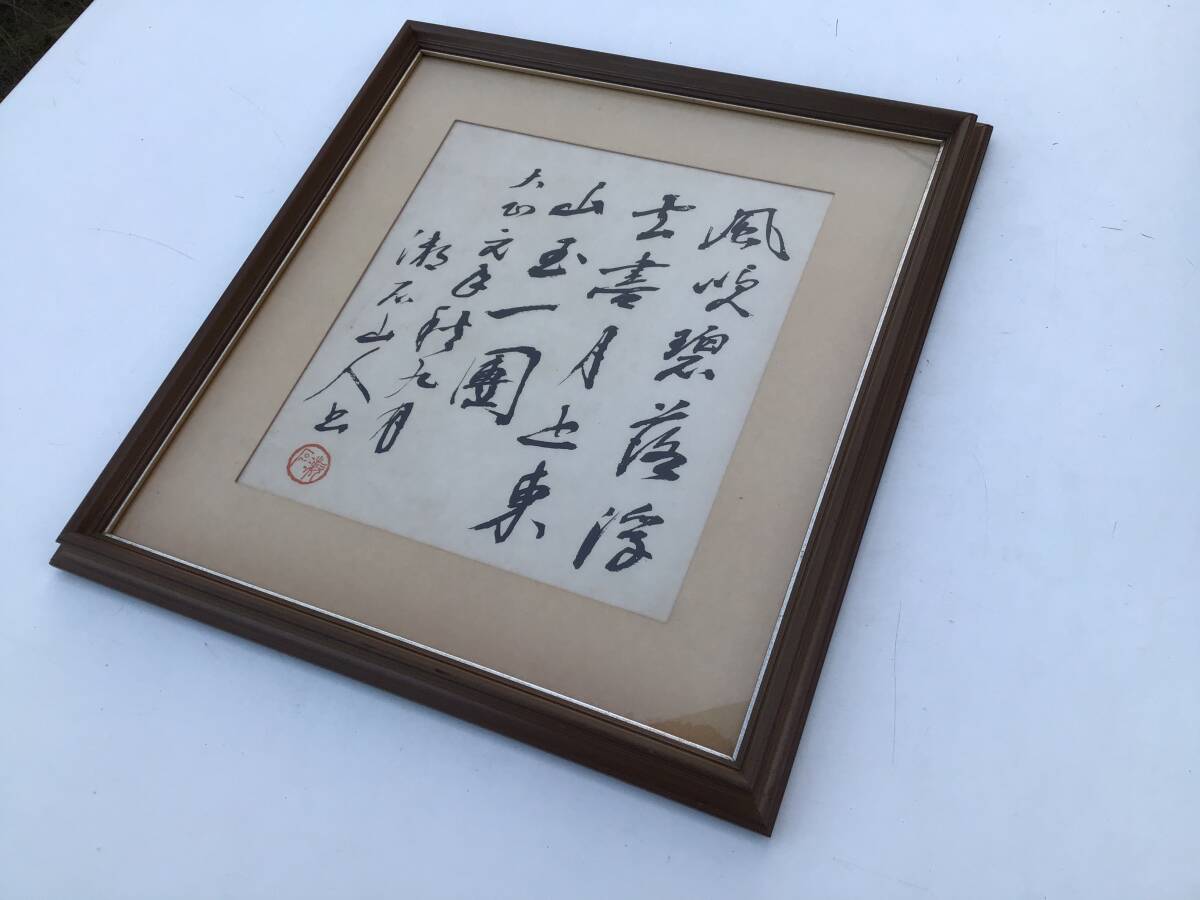 風吹碧落浮
雲盡月上東
山玉一團
大正元年秋九月
漱石山人書
漱石